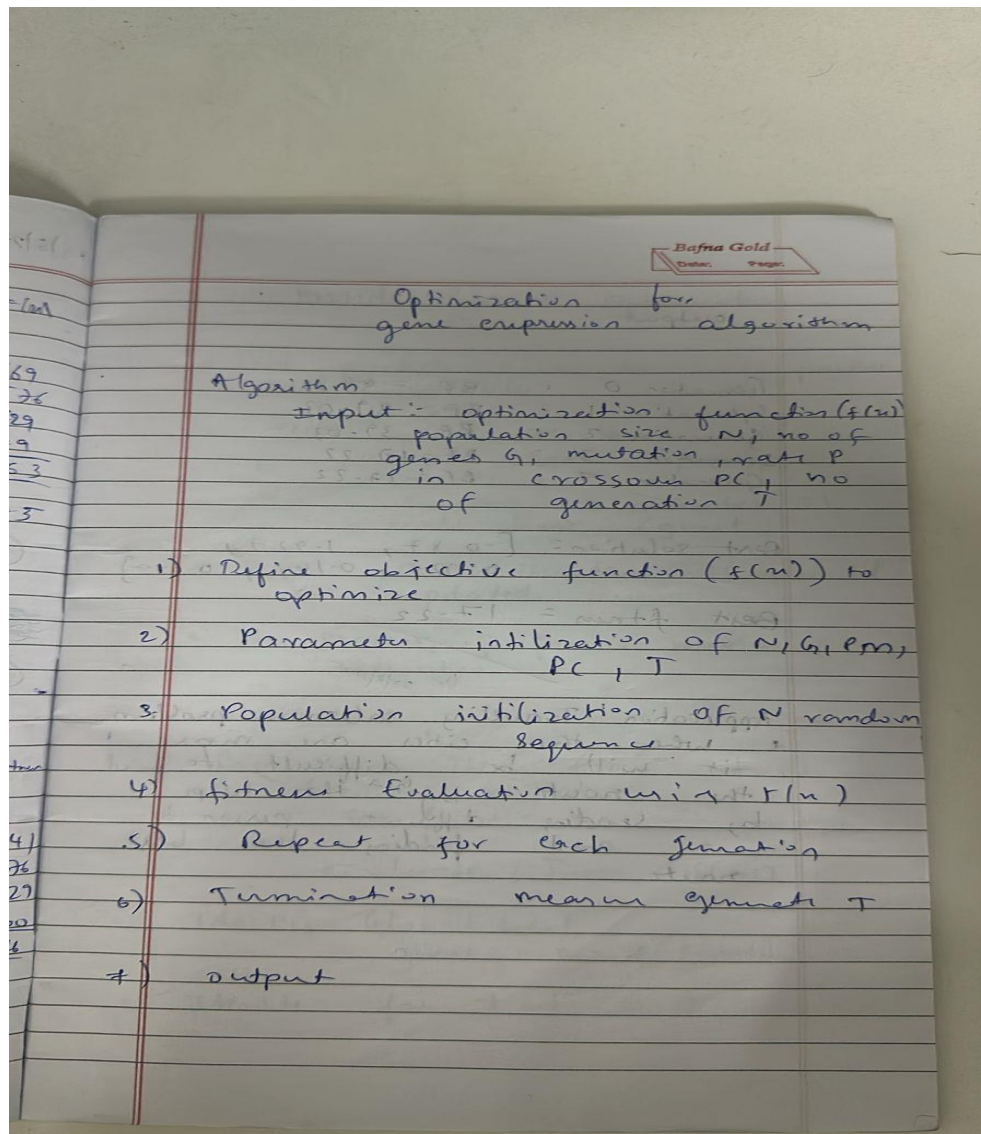 Bafna Gold
Date: Page:
Optimization for
gene expression algorithm
Algorithm
Input :- optimization function (f(x))
population size N, no of
genes G, mutation rate P
in crossover PC, no
of generation T
1) Define objective function (f(x)) to
optimize
2) Parameter intilization of N, G, Pm,
PC, T
3. Population initilization of N random
sequence
4) fitness Evaluation using f(x)
5) Repeat for each
6) Termination T
7) output
69
76
29
9
53
5
41
76
29
20
6